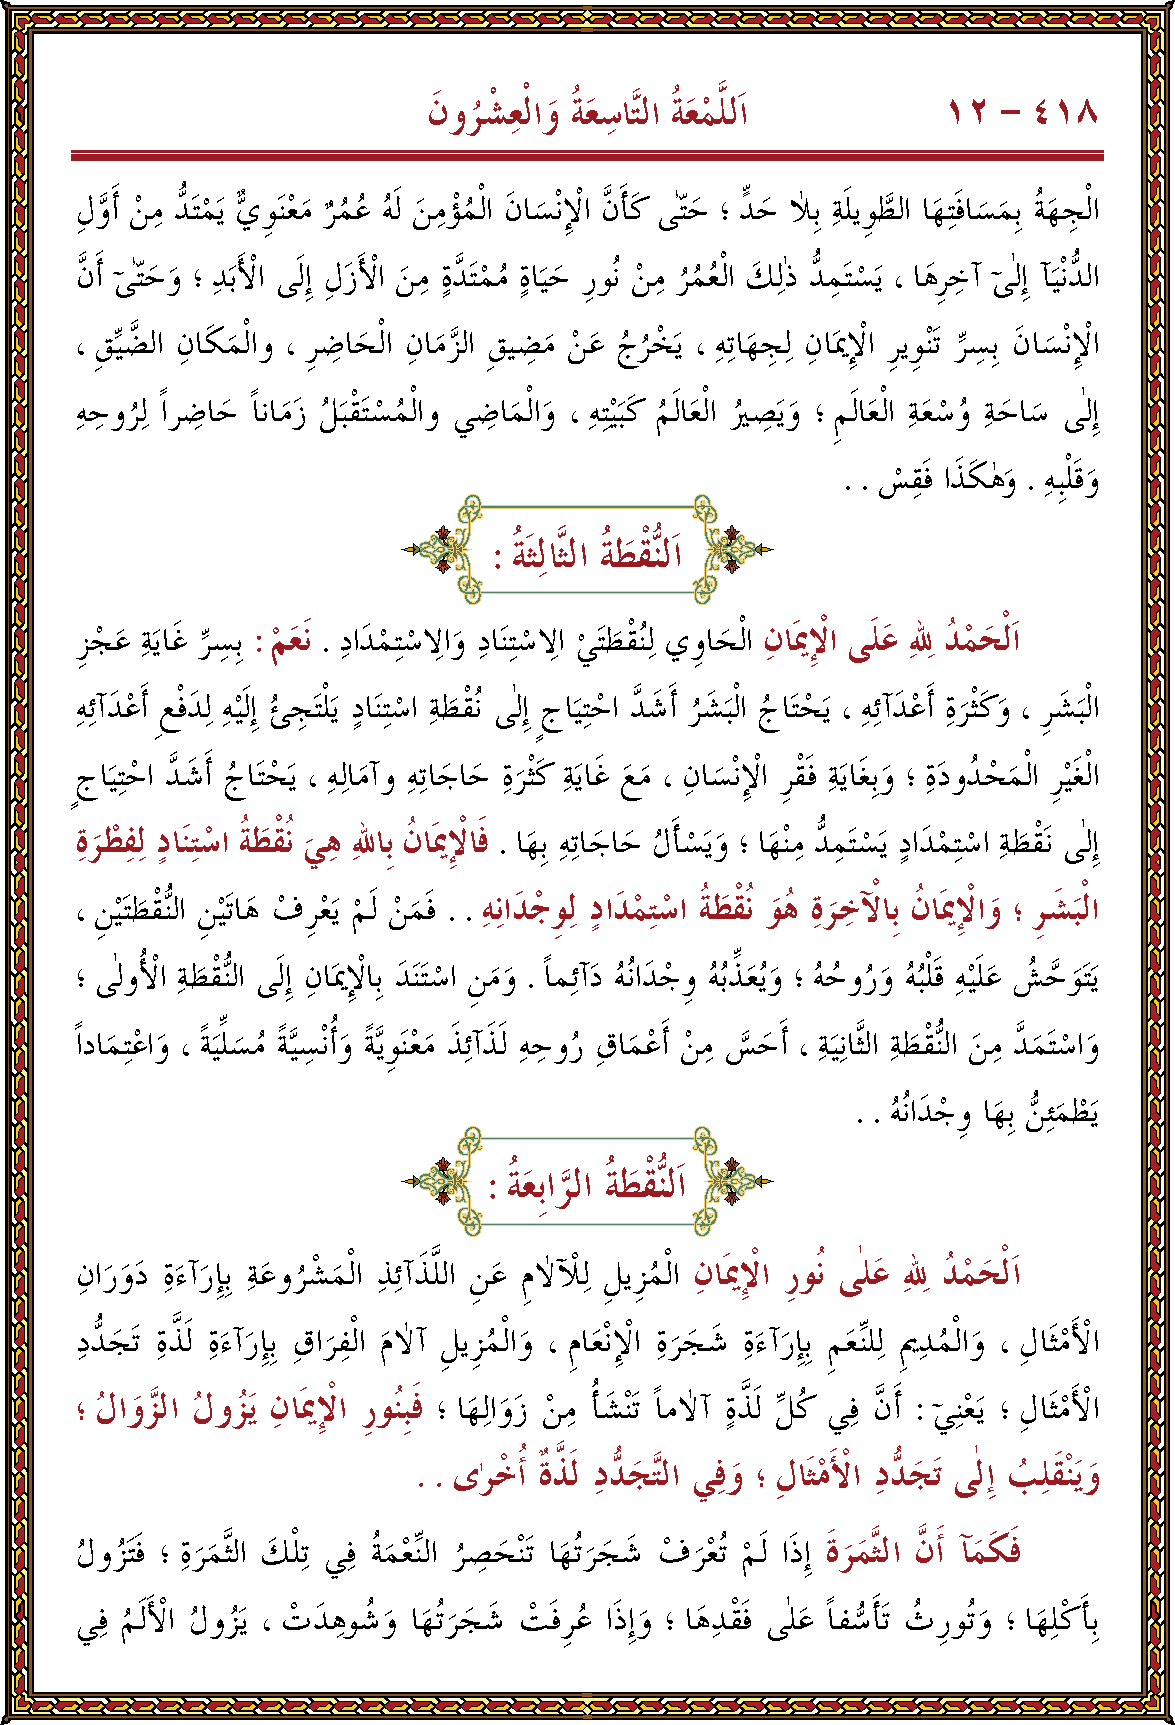 ٤١٨ – ١٢ اَللَّمْعَةُ التَّاسِعَةُ وَالْعِشْرُونَ
الْجِهَةُ بِمَسَافَتِهَا الطَّوِيلَةِ بِلَا حَدٍّ ؛ حَتّٰى كَأَنَّ الْإِنْسَانَ الْمُؤْمِنَ لَهُ عُمُرٌ مَعْنَوِيٌّ يَمْتَدُّ مِنْ أَوَّلِ
الدُّنْيَآ إِلٰىٓ آخِرِهَا ، يَسْتَمِدُّ ذٰلِكَ الْعُمُرُ مِنْ نُورِ حَيَاةٍ مُمْتَدَّةٍ مِنَ الْأَزَلِ إِلَى الْأَبَدِ ؛ وَحَتّٰىٓ أَنَّ
الْإِنْسَانَ بِسِرِّ تَنْوِيرِ الْإِيمَانِ لِجِهَاتِهِ ، يَخْرُجُ عَنْ مَضِيقِ الزَّمَانِ الْحَاضِرِ ، والْمَكَانِ الضَّيِّقِ ،
إِلٰى سَاحَةِ وُسْعَةِ الْعَالَمِ ؛ وَيَصِيرُ الْعَالَمُ كَبَيْتِهِ ، وَالْمَاضِي والْمُسْتَقْبَلُ زَمَاناً حَاضِراً لِرُوحِهِ
وَقَلْبِهِ . وَهٰكَذَا فَقِسْ . .
اَلنُّقْطَةُ الثَّالِثَةُ :
اَلْحَمْدُ لِلهِ عَلَى الْإِيمَانِ الْحَاوِي لِنُقْطَتَيْ الِاسْتِنَادِ وَالِاسْتِمْدَادِ . نَعَمْ : بِسِرِّ غَايَةِ عَجْزِ
الْبَشَرِ ، وَكَثْرَةِ أَعْدَآئِهِ ، يَحْتَاجُ الْبَشَرُ أَشَدَّ احْتِيَاجٍ إِلٰى نُقْطَةِ اسْتِنَادٍ يَلْتَجِئُ إِلَيْهِ لِدَفْعِ أَعْدَآئِهِ
الْغَيْرِ الْمَحْدُودَةِ ؛ وَبِغَايَةِ فَقْرِ الْإِنْسَانِ ، مَعَ غَايَةِ كَثْرَةِ حَاجَاتِهِ وآمَالِهِ ، يَحْتَاجُ أَشَدَّ احْتِيَاجٍ
إِلٰى نَقْطَةِ اسْتِمْدَادٍ يَسْتَمِدُّ مِنْهَا ؛ وَيَسْأَلُ حَاجَاتِهِ بِهَا . فَالْإِيمَانُ بِاللهِ هِيَ نُقْطَةُ اسْتِنَادٍ لِفِطْرَةِ
الْبَشَرِ ؛ وَالْإِيمَانُ بِالْآخِرَةِ هُوَ نُقْطَةُ اسْتِمْدَادٍ لِوِجْدَانِهِ . . فَمَنْ لَمْ يَعْرِفْ هَاتَيْنِ النُّقْطَتَيْنِ ،
يَتَوَحَّشُ عَلَيْهِ قَلْبُهُ وَرُوحُهُ ؛ وَيُعَذِّبُهُ وِجْدَانُهُ دَآئِماً . وَمَنِ اسْتَنَدَ بِالْإِيمَانِ إِلَى النُّقْطَةِ الْأُولٰى ؛
وَاسْتَمَدَّ مِنَ النُّقْطَةِ الثَّانِيَةِ ، أَحَسَّ مِنْ أَعْمَاقِ رُوحِهِ لَذَآئِذَ مَعْنَوِيَّةً وَأُنْسِيَّةً مُسَلِّيَةً ، وَاعْتِمَاداً
يَطْمَئِنُّ بِهَا وِجْدَانُهُ . .
اَلنُّقْطَةُ الرَّابِعَةُ :
اَلْحَمْدُ لِلهِ عَلٰى نُورِ الْإِيمَانِ الْمُزِيلِ لِلْآلَامِ عَنِ اللَّذَآئِذِ الْمَشْرُوعَةِ بِإِرَآءَةِ دَوَرَانِ
الْأَمْثَالِ ، وَالْمُدِيمِ لِلنِّعَمِ بِإِرَآءَةِ شَجَرَةِ الْإِنْعَامِ ، وَالْمُزِيلِ آلَامَ الْفِرَاقِ بِإِرَآءَةِ لَذَّةِ تَجَدُّدِ
الْأَمْثَالِ ؛ يَعْنِيٓ : أَنَّ فِي كُلِّ لَذَّةٍ آلَاماً تَنْشَأُ مِنْ زَوَالِهَا ؛ فَبِنُورِ الْإِيمَانِ يَزُولُ الزَّوَالُ ؛
وَيَنْقَلِبُ إِلٰى تَجَدُّدِ الْأَمْثَالِ ؛ وَفِي التَّجَدُّدِ لَذَّةٌ أُخْرٰى . .
فَكَمَآ أَنَّ الثَّمَرَةَ إِذَا لَمْ تُعْرَفْ شَجَرَتُهَا تَنْحَصِرُ النِّعْمَةُ فِي تِلْكَ الثَّمَرَةِ ؛ فَتَزُولُ
بِأَكْلِهَا ؛ وَتُورِثُ تَأَسُّفاً عَلٰى فَقْدِهَا ؛ وَإِذَا عُرِفَتْ شَجَرَتُهَا وَشُوهِدَتْ ، يَزُولُ الْأَلَمُ فِي